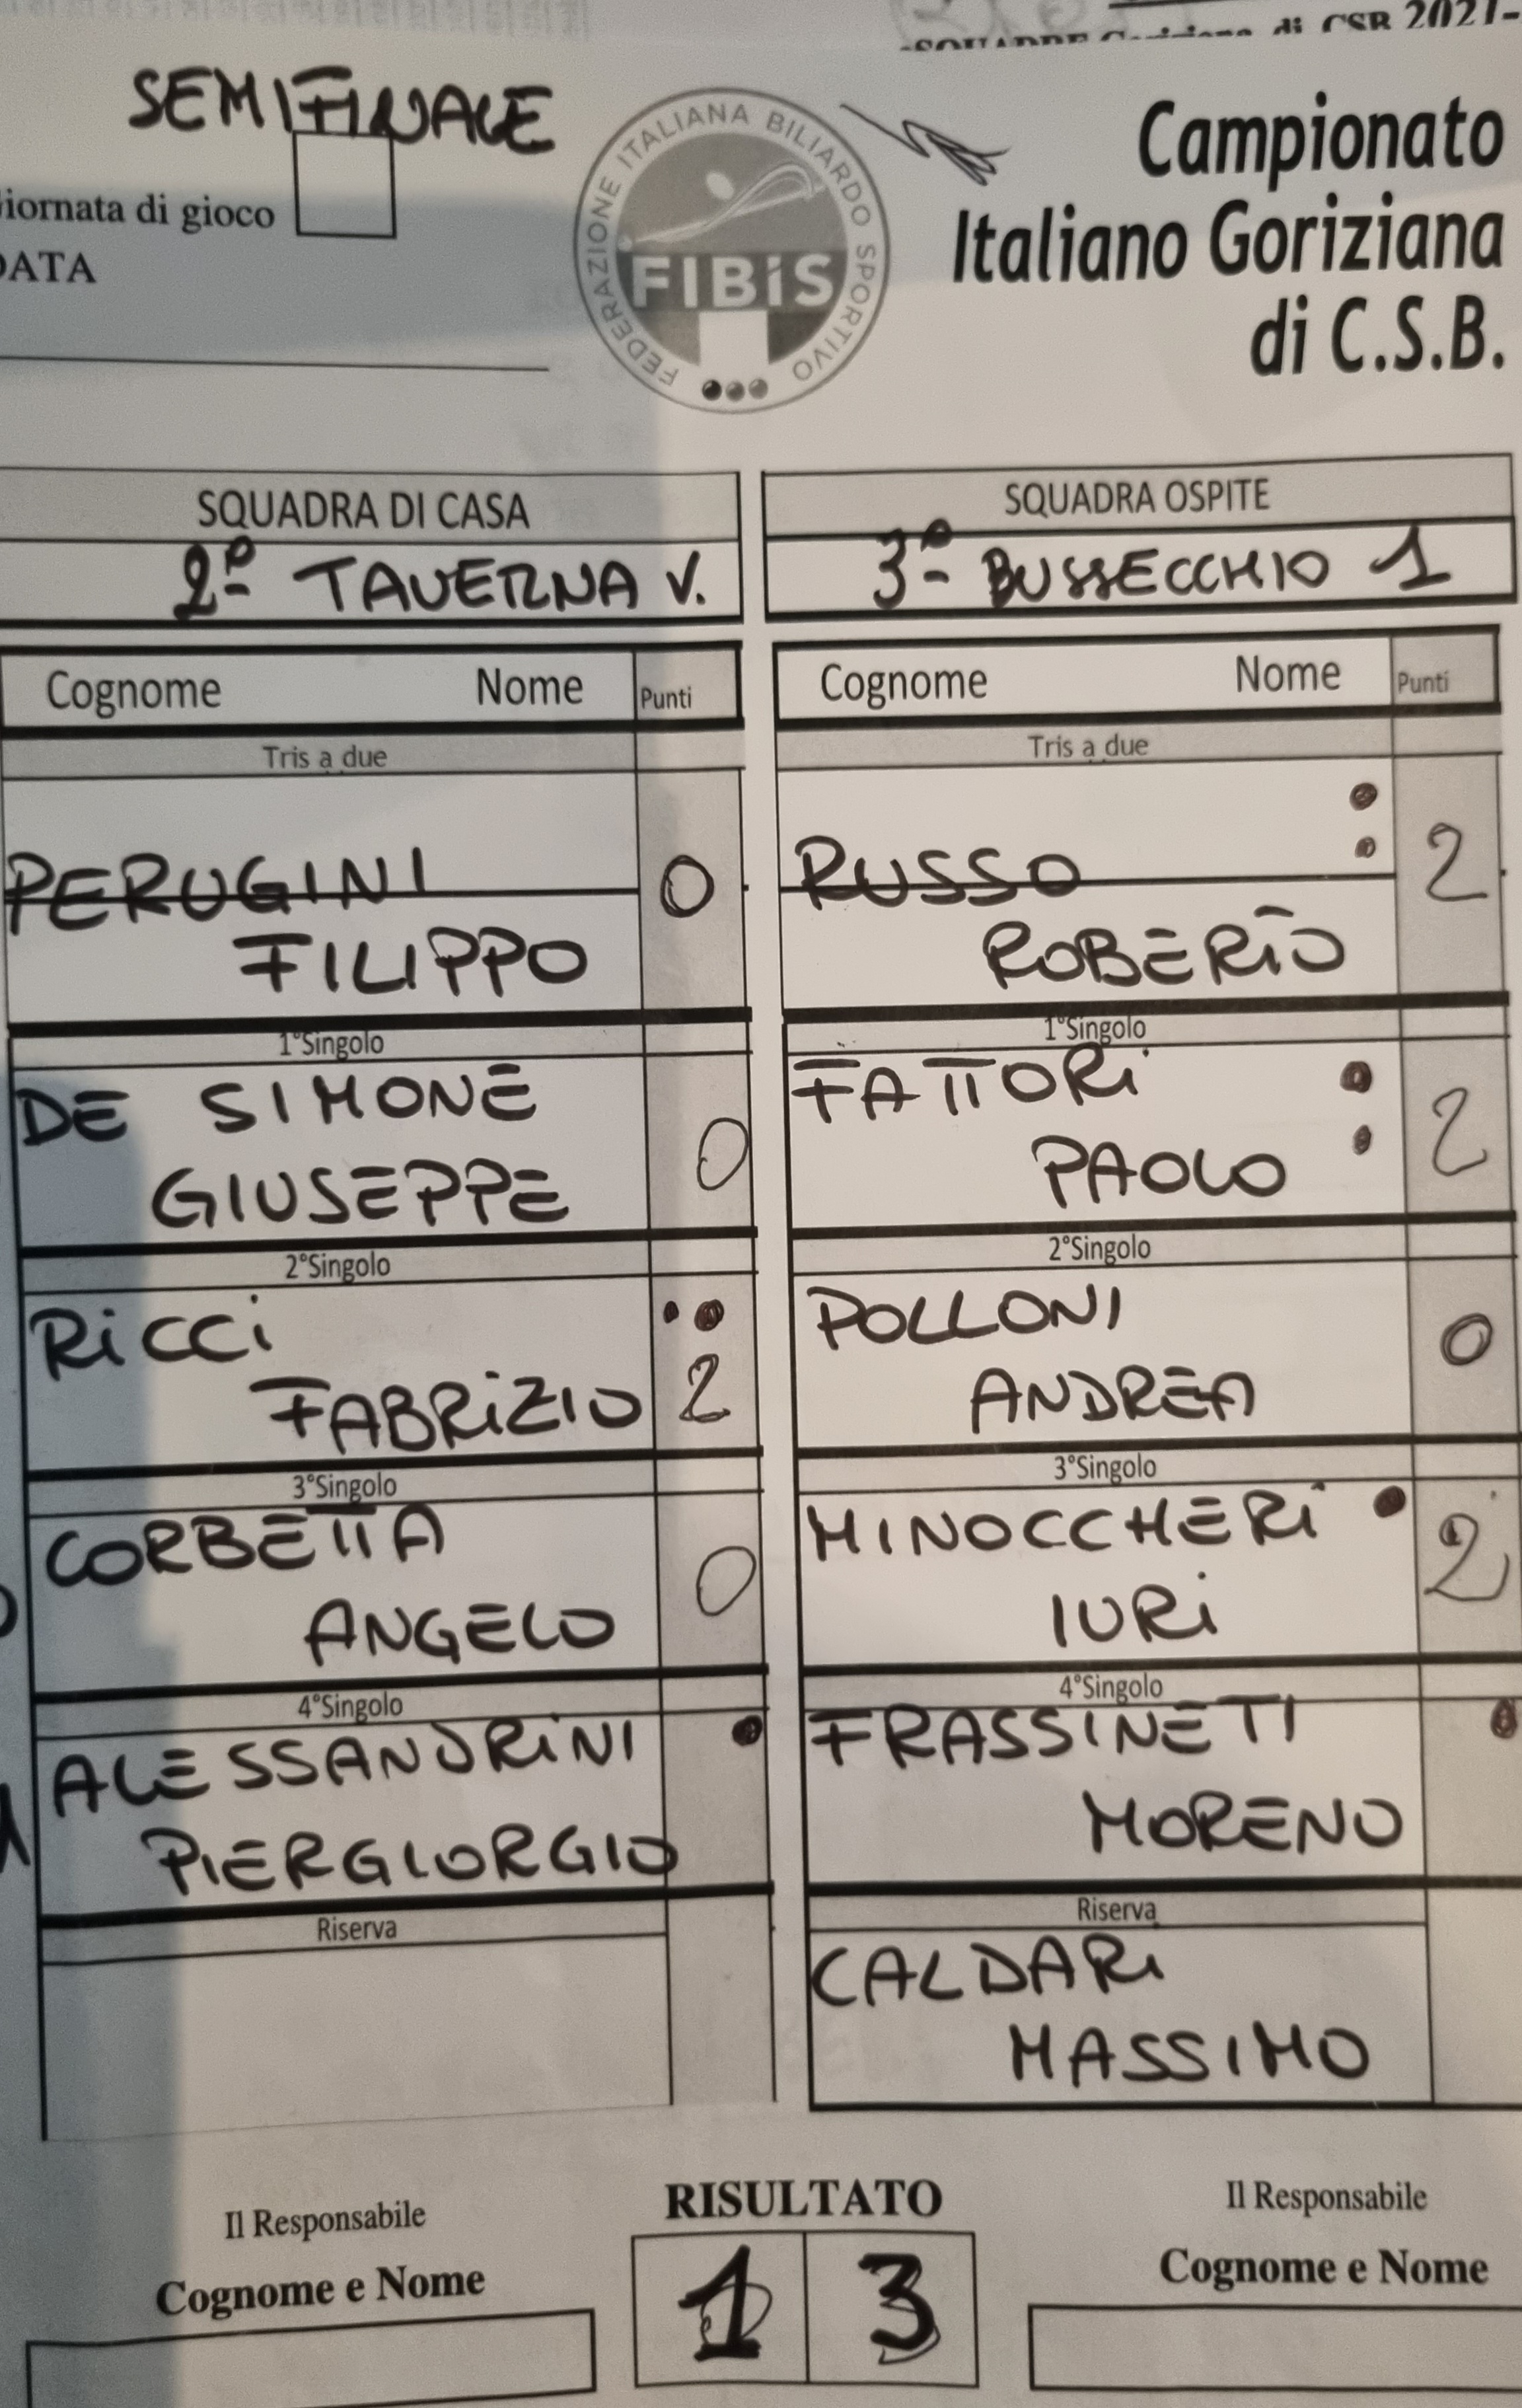 SQUADRE Goriziana di CSB 2021-
SEMIFINALE
FEDERAZIONE ITALIANA BILIARDO SPORTIVO
FIBiS
Campionato
Italiano Goriziana
di C.S.B.
iornata di gioco
DATA
SQUADRA DI CASA SQUADRA OSPITE
2ª TAVERNA V. 3ª BUSSECCHIO 1
Cognome Nome Punti Cognome Nome Punti
Tris a due Tris a due
PERUGINI 0 RUSSO 2
FILIPPO ROBERTO
1°Singolo 1°Singolo
DE SIMONE FATTORI
GIUSEPPE 0 PAOLO 2
2°Singolo 2°Singolo
RICCI POLLONI 0
FABRIZIO 2 ANDREA
3°Singolo 3°Singolo
CORBETTA MINOCCHERI
ANGELO 0 IURI 2
4°Singolo 4°Singolo
ALESSANDRINI FRASSINETI
PIERGIORGIO MORENO
Riserva Riserva
CALDARI
MASSIMO
Il Responsabile RISULTATO Il Responsabile
Cognome e Nome 1 3 Cognome e Nome